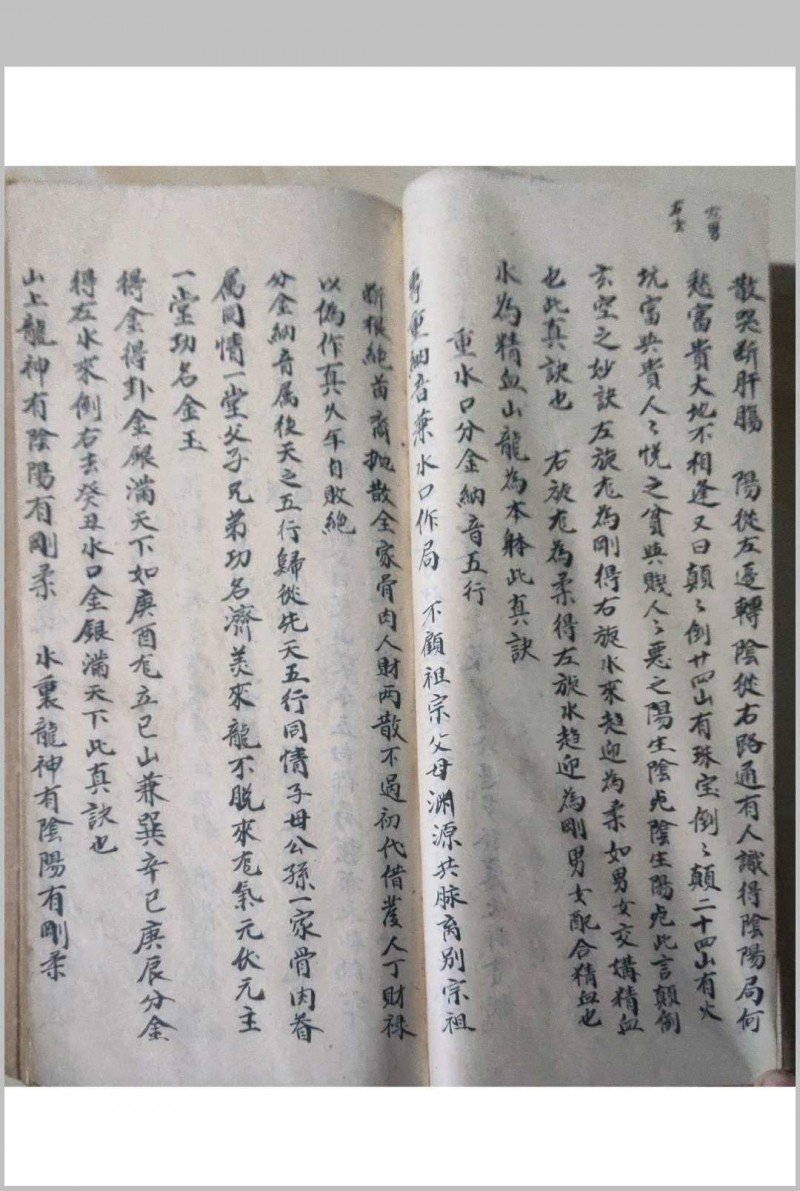 左男
右女
散哭断肝腸　陽從左邊轉陰從右路通有人識得陰陽局何
愁富貴大地不相逢又曰顛〻倒廿四山有珠宝倒〻顛二十四山有火
坑富與貴人〻悅之貧與賤人〻惡之陽生陰死陰生陽死此言顛倒
玄空之妙訣左旋龙為剛得右旋水來趋迎為柔如男女交媾精血
也此真訣也　右旋龙為柔得左旋水趋迎為剛男女配合精血也
水為精血山龍為本躰此真訣
重水口分金納音五行
專重納音兼水口作局　不顧祖宗父母渊源共脉离別宗祖
断根絕苗离抛散全家骨肉人財两散不過初代借發人丁財祿
以偽作真久年自敗絕
分金納音属後天之五行歸從先天五行同情子母公孫一家骨肉眷
属同情一堂父子兄弟功名濟美來龍不脱來龙氣元伏元主
一堂功名金玉
得金得卦金銀滿天下如庚酉龙立巳山兼巽辛巳庚辰分金
得左水來倒右去癸丑水口金銀滿天下此真訣也
山上龍神有陰陽有剛柔　水裏龍神有陰陽有剛柔